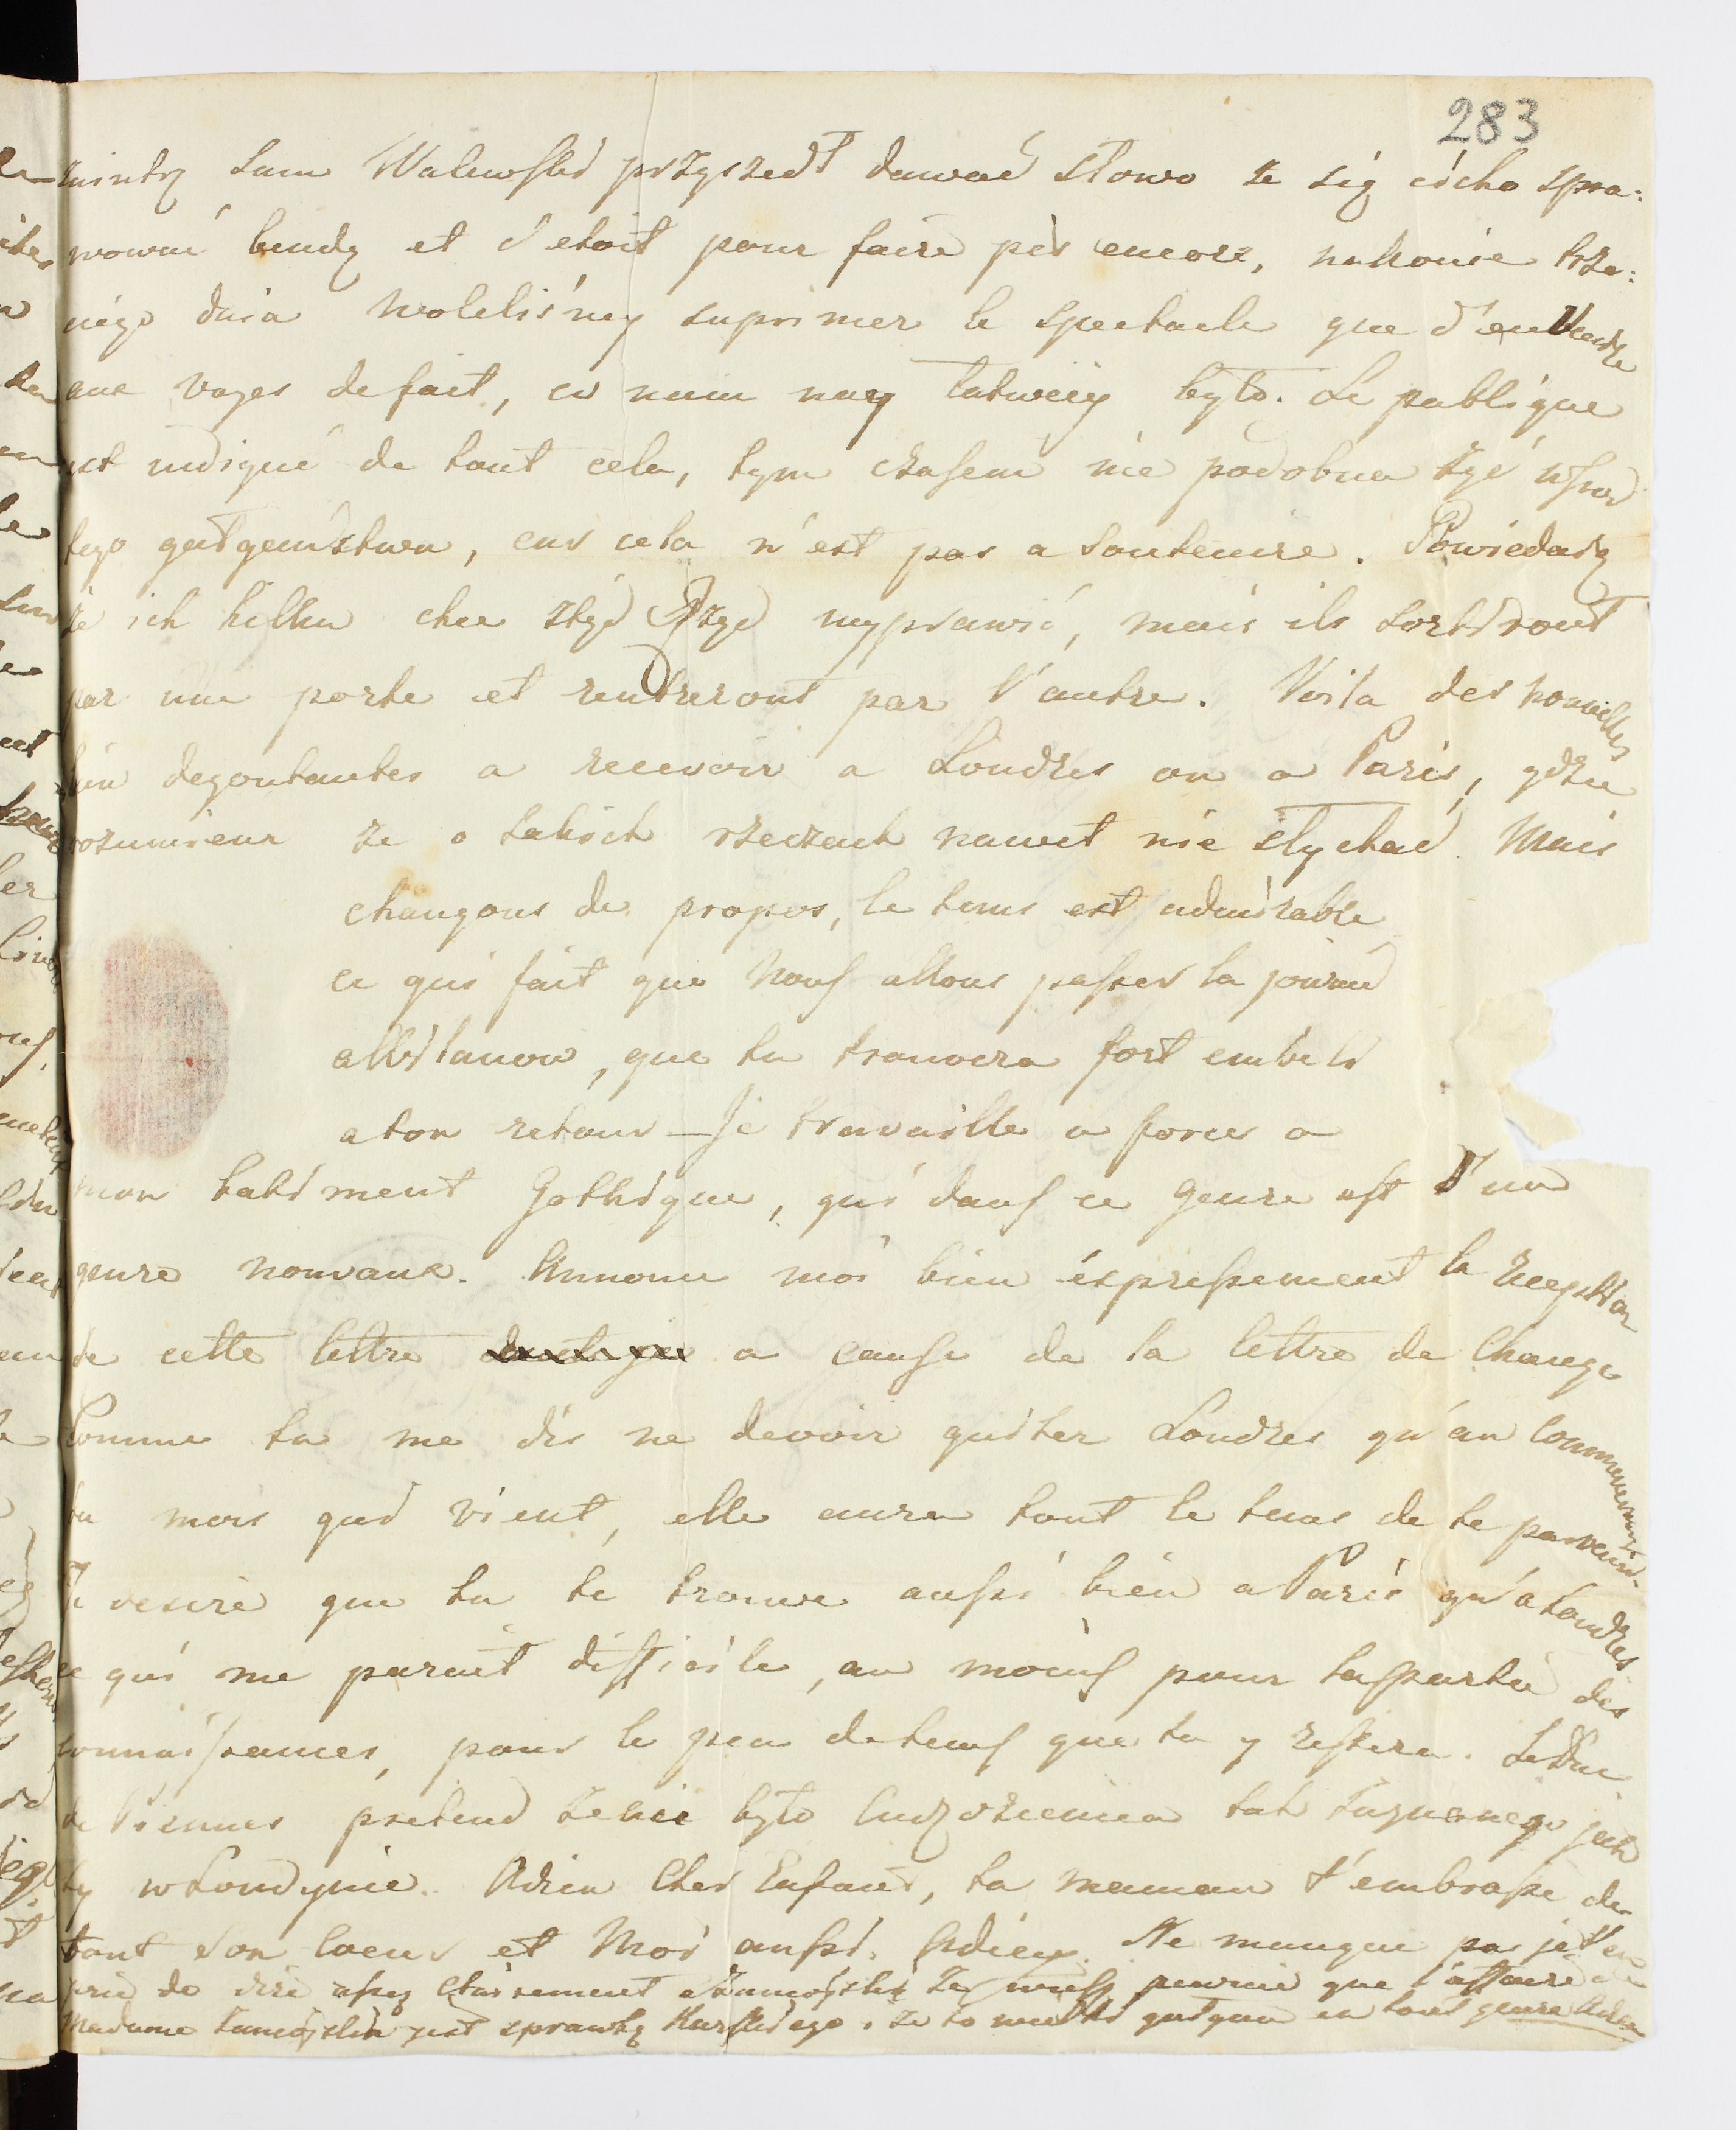 283
sam Walewski przyszedł dawać słowo że się cicho spra:
wować bendą et s'etoit pour faire pis encore, nakonie trze:
ciego dnia woleliśmy suprimer le spectacle que d'en Vendre
aux voyes de fait, co nam nay łatwiey było. Le publique
est indigné de tout cela, tym czasem nie podobna żyć wsrod
tego gałgaństwa, car cela n'est pas a soutenire. Powiedaią
że ich kilku chce ztąd wyprawić, mais ils sortiront
par une porte et rentreront par l'autre. Voila des nouvelles
bien degoutantes a recevoir a Londres ou a Paris, gdzie
rozumiem że o takich rzeczach nawet nie słychać. Mais
changons de propos, le tems est admirable
ce qui fait que Nous allons passer la journé
a Wilanow, que tu trouvera fort embeli
a ton retour — Je travaille a force a
mon batiment Gothique, qui dans ce Genre est d'un
genre nouvaux. Annonce moi bien éxpressement la reception
de cette lettre a cause de la lettre de Change
Comme tu me dis ne devoir quiter Londres qu'au Commencement
du mois qui vient, elle aura tout le tems de te parvenir.
Je desire que tu te trouve aussi bien a Paris qu'a Londres
ce qui me parait difficile, au moins pour la partie des
connaissances, pour le peu de tems que tu y restera. Le Duc
de Viennes pretend że nie było Cudzoziemca tak jak
ty w Londynie. Adieu Cher Enfant, ta maman t'embrasse de
tout son Coeur et Moi aussi. Adieu. Ne manque pas je t'en
prie de dire assez clairement a Zamoyski que l'affaire de
Madame Zamoyska jest sprawką Karskiego. że to wielki gałgan en tout genre Adieu